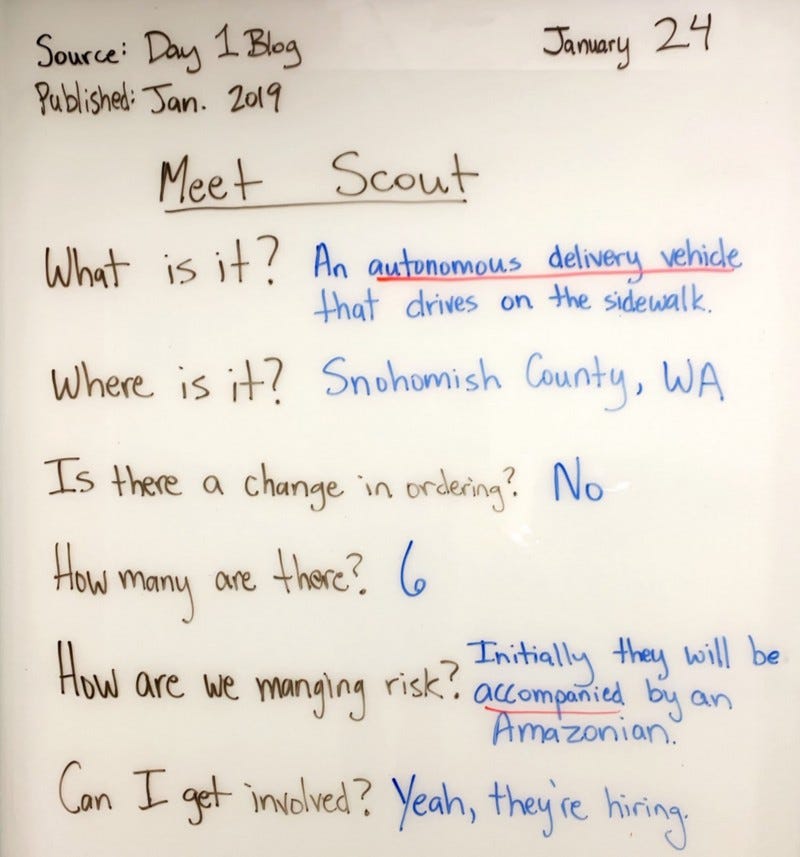 Source: Day 1 Blog
January 24
Published: Jan. 2019
Meet Scout
What is it? An autonomous delivery vehicle
that drives on the sidewalk.
Where is it? Snohomish County, WA
Is there a change in ordering? No
How many are there? 6
How are we manging risk? Initially they will be
accompanied by an
Amazonian.
Can I get involved? Yeah, they're hiring.